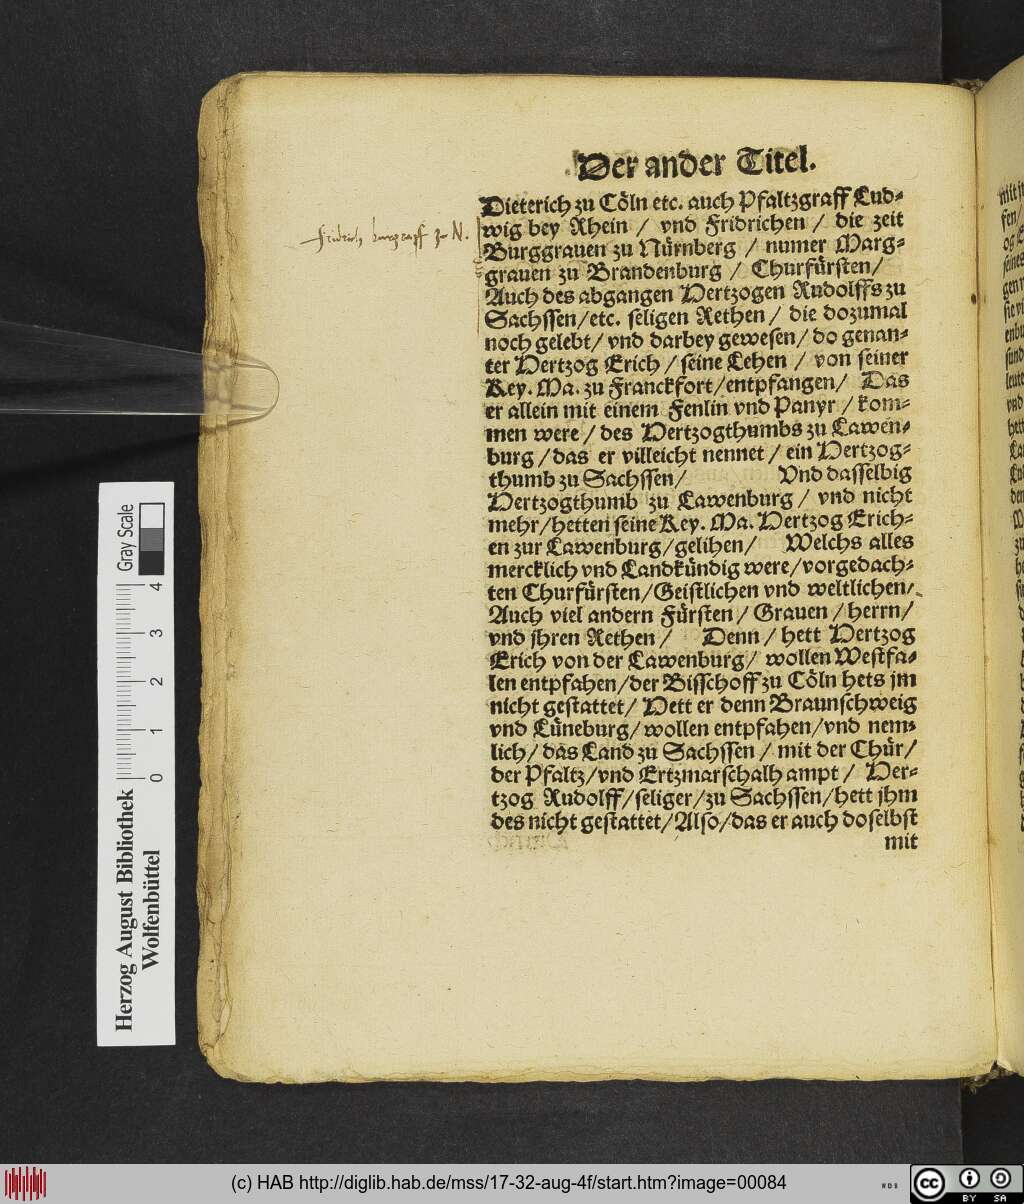 Der ander Titel.
Dieterich zu Cöln etc. auch Pfaltzgraff Lud-
wig bey Rhein / vnd Fridrichen / die zeit
Burggrauen zu Nürnberg / numer Marg-
grauen zu Brandenburg / Churfürsten/
Auch des abgangen Hertzogen Rudolffs zu
Sachssen/etc. seligen Rethen / die dozumal
noch gelebt/ vnd darbey gewesen/ do genan-
ter Hertzog Erich / seine Lehen / von seiner
Key. Ma. zu Franckfort/entpfangen/ Das
er allein mit einem Fenlin vnd Panyr / kom-
men were / des Hertzogthumbs zu Lawen-
burg / das er villeicht nennet / ein Hertzog-
thumb zu Sachssen/ Vnd dasselbig
Hertzogthumb zu Lawenburg / vnd nicht
mehr/hetten seine Key. Ma. Hertzog Erich-
en zur Lawenburg/gelihen/ Welchs alles
mercklich vnd Landkündig were/vorgedach-
ten Churfürsten/Geistlichen vnd weltlichen/
Auch viel andern Fürsten / Grauen / herrn/
vnd jhren Rethen / Denn / hett Hertzog
Erich von der Lawenburg/ wollen Westfa-
len entpfahen/der Bisschoff zu Cöln hets jm
nicht gestattet/ Hett er denn Braunschweig
vnd Lüneburg/wollen entpfahen/vnd nem-
lich/ das Land zu Sachssen / mit der Chür/
der Pfaltz/vnd Ertzmarschalh ampt / Her-
tzog Rudolff/seliger/zu Sachssen/hett jhm
des nicht gestattet/Also/das er auch doselbst
mit
fridrich burgraff zu N.
Herzog August Bibliothek
Wolfenbüttel
Gray Scale
0 1 2 3 4
(c) HAB http://diglib.hab.de/mss/17-32-aug-4f/start.htm?image=00084
cc BY SA